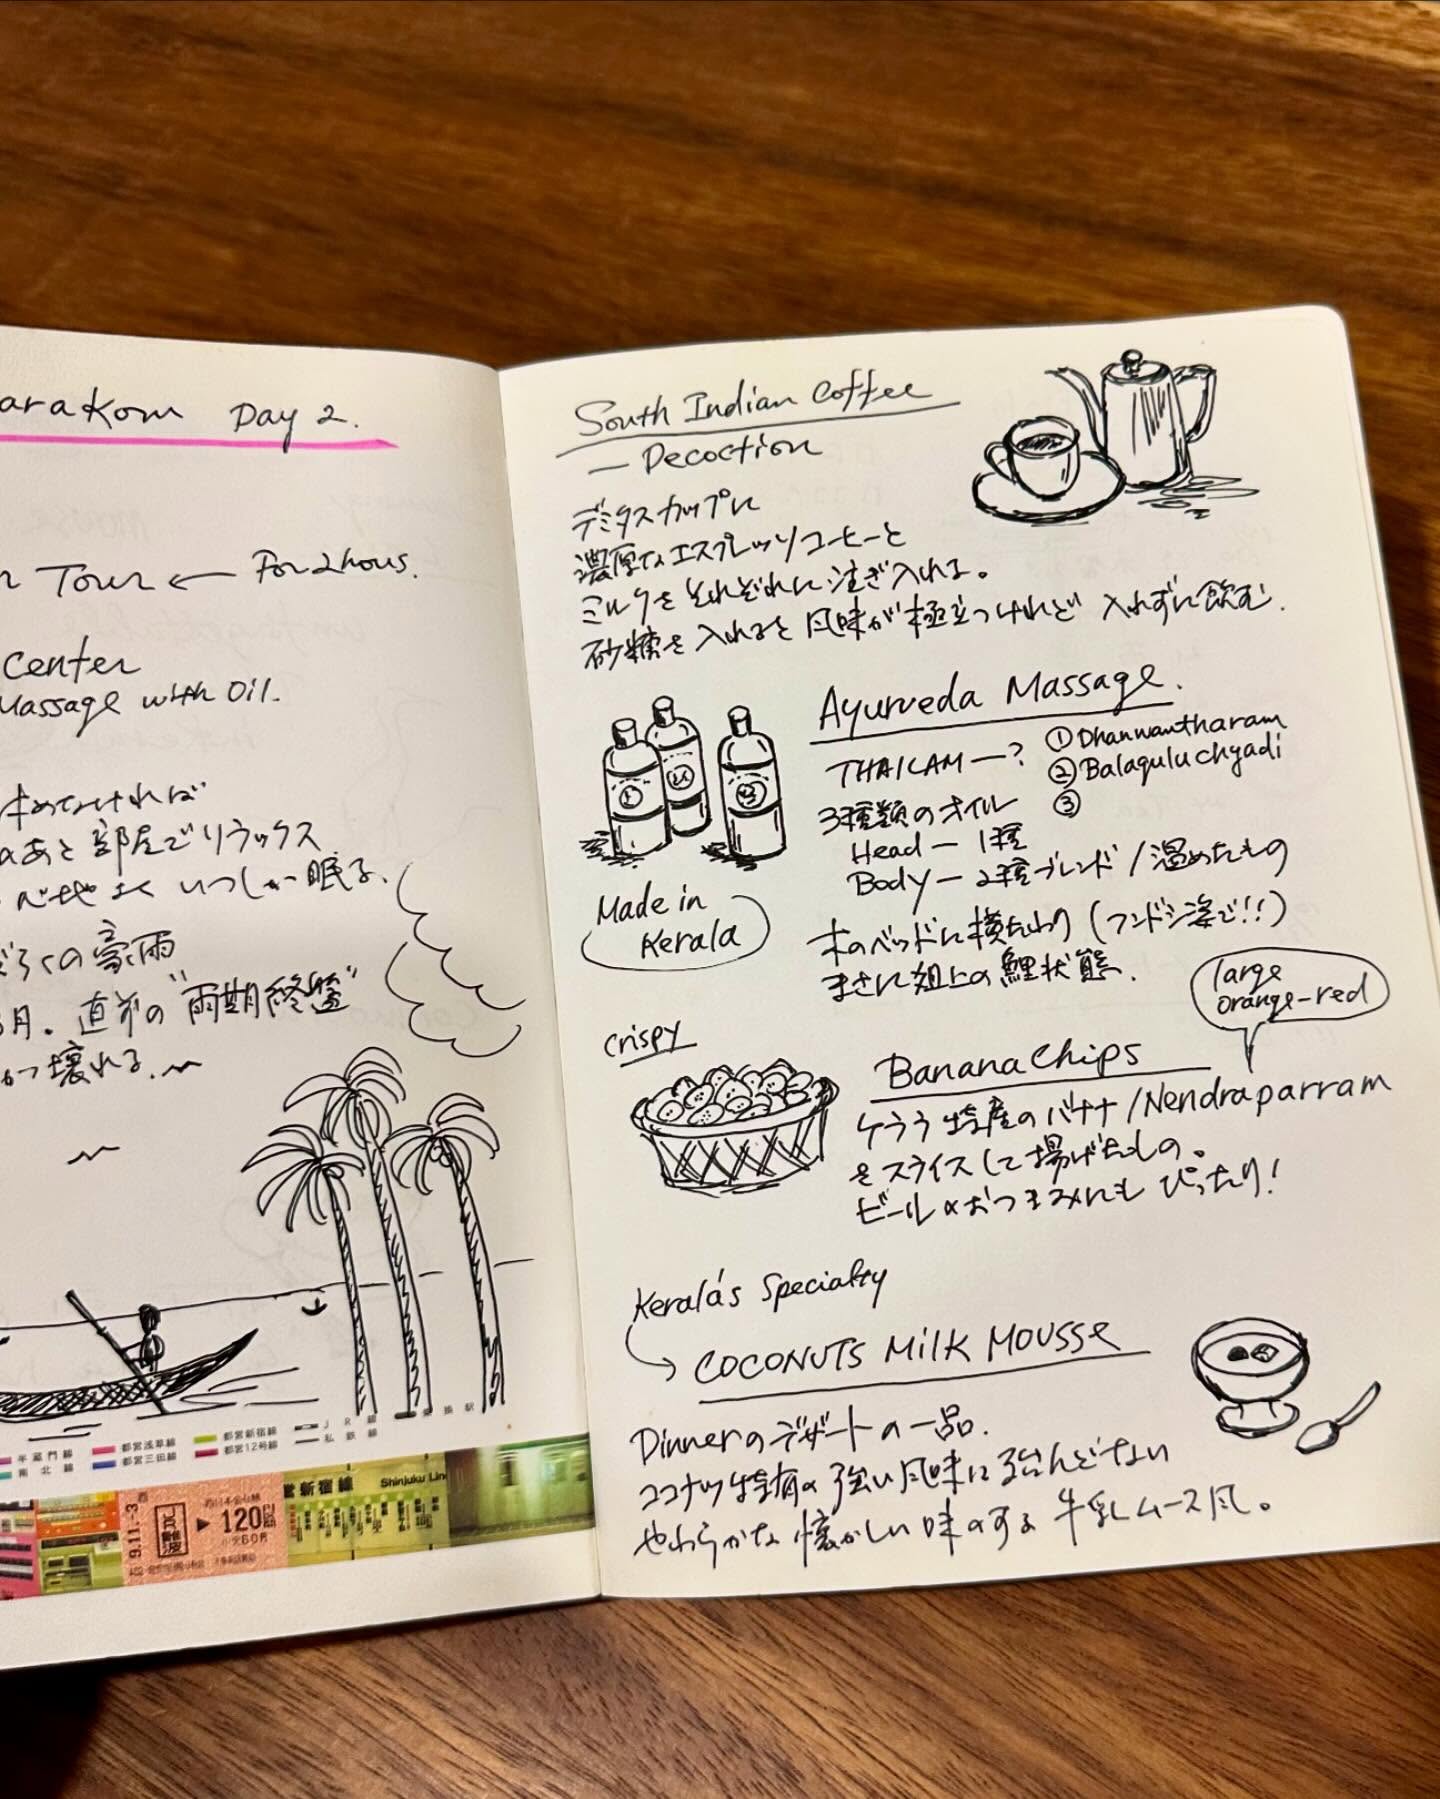 arakom Day 2.
Tour ← For 2 hous.
Center
Massage with Oil.
めなければ
あと 部屋でリラックス
いつしか眠る、
の豪雨
月。直前の"雨期終盤"
壊れる。
JR線 乗換駅
半蔵門線 都営浅草線 都営新宿線 私鉄線
南北線 都営三田線 都営12号線
営新宿線 Shinjuku Lin
9.11.-3
▶ 120円
小児60円
South Indian Coffee
— Decoction
デミタスカップに
濃厚なエスプレッソコーヒーと
ミルクをそれぞれに注ぎ入れる。
砂糖を入れると風味が極立つけれど 入れずに飲む.
Ayurveda Massage.
THAILAM —?
① Dhanwantharam
② Balaguluchyadi
③
3種類のオイル
Head — 1種
Body — 2種ブレンド/温めたもの
木のベッドに横たわり (フンドシ姿で!!)
まさに俎上の鯉状態.
Made in
Kerala
large
orange-red
crispy
Banana Chips
ケララ特産のバナナ/Nendraparram
をスライスして揚げたもの。
ビールのおつまみにも ぴったり!
Kerala's Specialty
COCONUTS MilK MOUSSE
Dinnerのデザートの一品.
ココナツ特有の強い風味は殆んどない
やわらかな懐かしい味のする 牛乳ムース風。